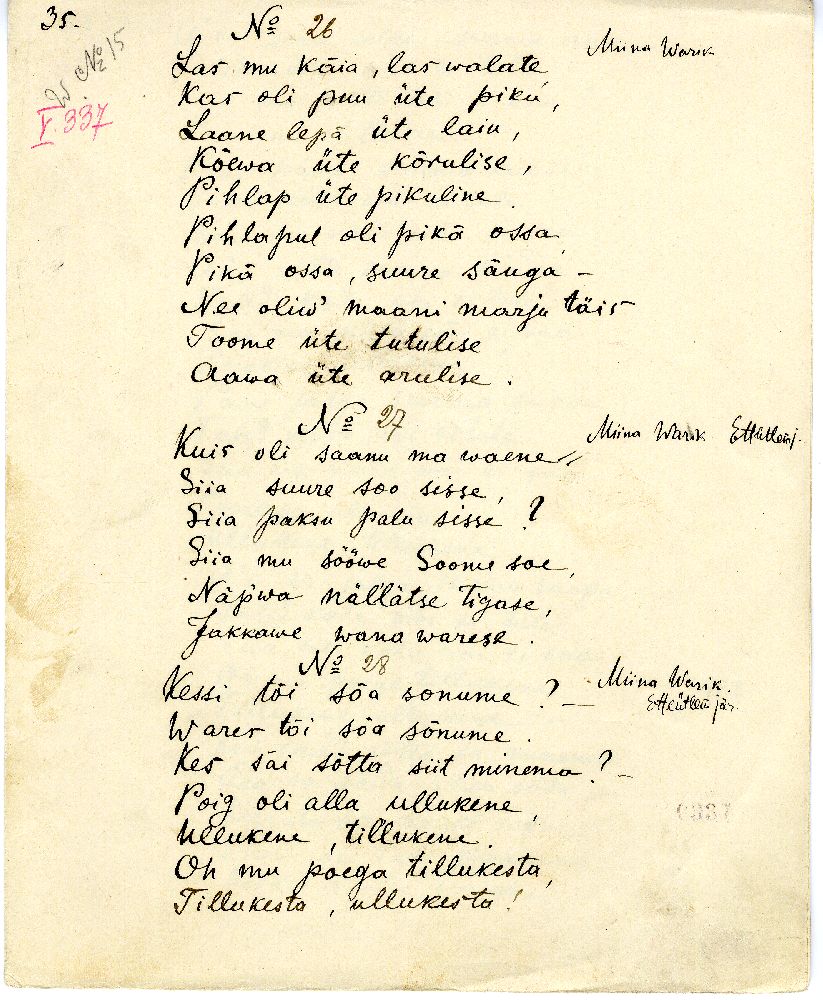 35.
W №15
V. 337
№ 26
Miina Warik
Las mu käia, las walate
Kas oli puu üte pikü,
Laane lepä üte laiu,
Kõewa üte kõrulise,
Pihlap üte pikuline.
Pihlapul oli pikä ossa,
Pikä ossa, suure sänga –
Nee oliw' maani marju täis
Toome üte tutulise
Aawa üte arulise.
№ 27
Miina Warik Etteütlemj.
Kuis oli saanu ma waene
Siia suure soo sisse,
Siia paksu palu sisse?
Siia mu sööwe Soome soe,
Näpwa nällätse tigase,
Jakkawe wana warese.
№ 28
Miina Warik.
Etteütlem jär.
Kessi tõi sõa sonume? –
Wares tõi sõa sõnume.
Kes sai sõtta siit minema? –
Poig oli alla ullukene,
Ullukene, tillukene.
Oh mu poega tillukesta,
Tillukesta, ullukesta!
0337